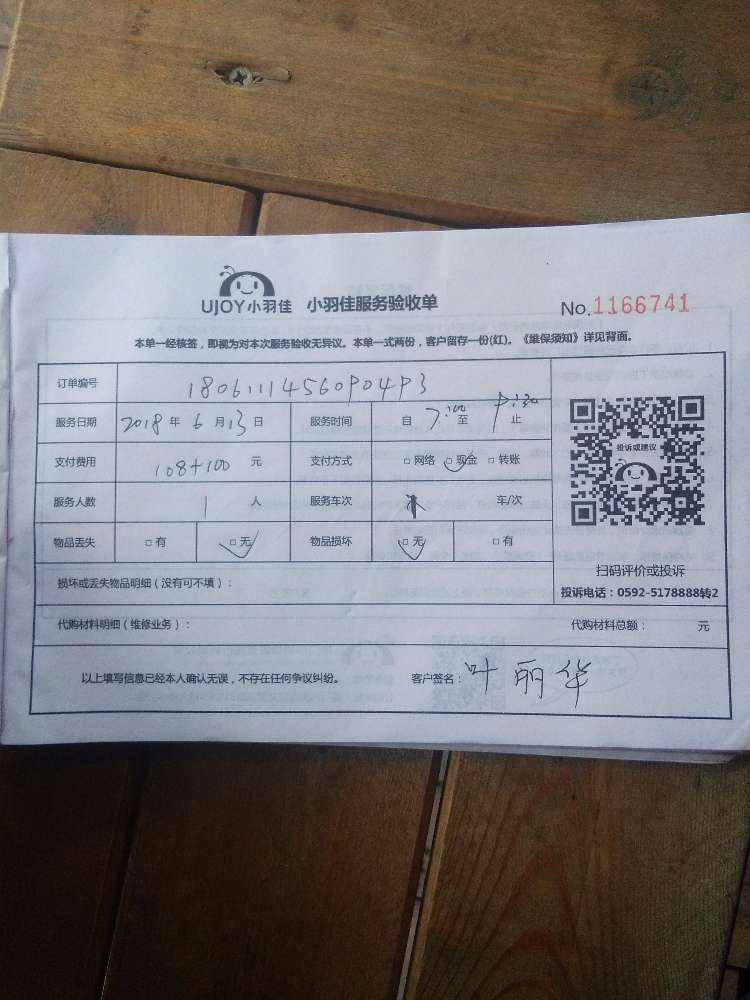 UJOY小羽佳 小羽佳服务验收单 No.1166741
本单一经核签，即视为对本次服务验收无异议。本单一式两份，客户留存一份(红)。《维保须知》详见背面。
订单编号 18061114560P04P3
服务日期 2018年6月13日 服务时间 自7:00至 :30止
支付费用 108+100元 支付方式 □网络 □现金 □转账
投诉或建议
服务人数 1人 服务车次 车/次
物品丢失 □有 □无 物品损坏 □无 □有
扫码评价或投诉
损坏或丢失物品明细（没有可不填）：
投诉电话：0592-5178888转2
代购材料明细（维修业务）： 代购材料总额： 元
以上填写信息已经本人确认无误，不存在任何争议纠纷。 客户签名：叶丽华